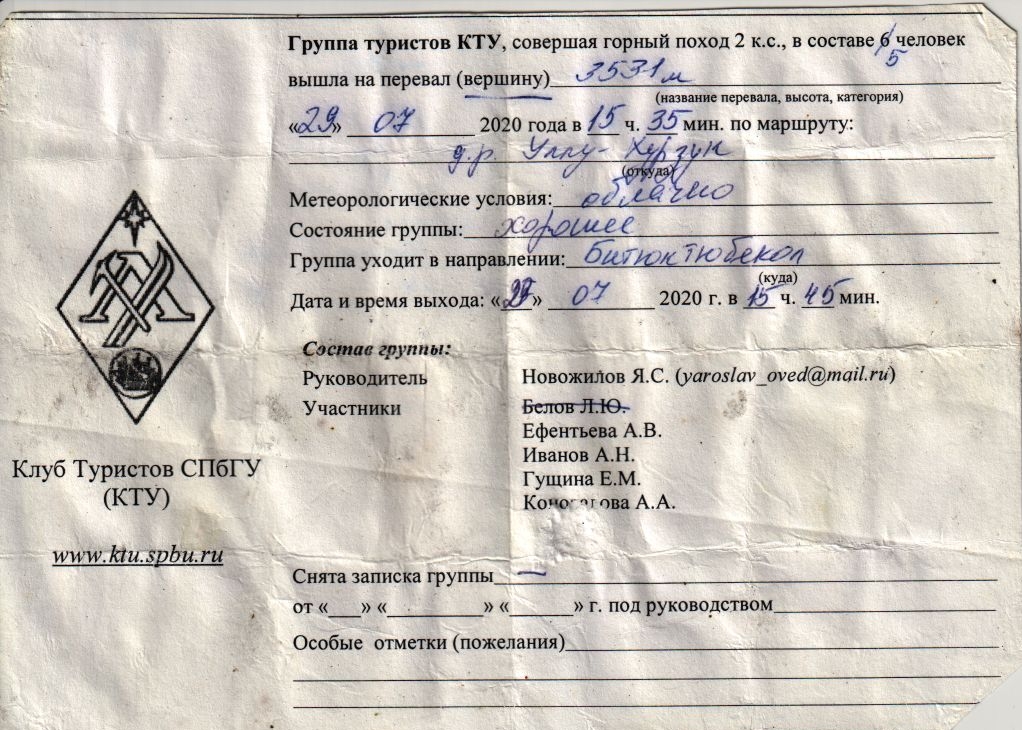 Группа туристов КТУ, совершая горный поход 2 к.с., в составе 6 5 человек
вышла на перевал (вершину) 3531м
(название перевала, высота, категория)
«29» 07 2020 года в 15 ч. 35 мин. по маршруту:
д.р. Уллу-Хурзук
(откуда)
Метеорологические условия: облачно
Состояние группы: хорошее
Группа уходит в направлении: Битюктюбекол
(куда)
Дата и время выхода: «29» 07 2020 г. в 15 ч. 45 мин.
Состав группы:
Руководитель Новожилов Я.С. (yaroslav_oved@mail.ru)
Участники Белов Л.Ю.
Ефентьева А.В.
Иванов А.Н.
Гущина Е.М.
А.А.
Клуб Туристов СПбГУ
(КТУ)
www.ktu.spbu.ru
Снята записка группы —
от «___» «________» «______» г. под руководством
Особые отметки (пожелания)